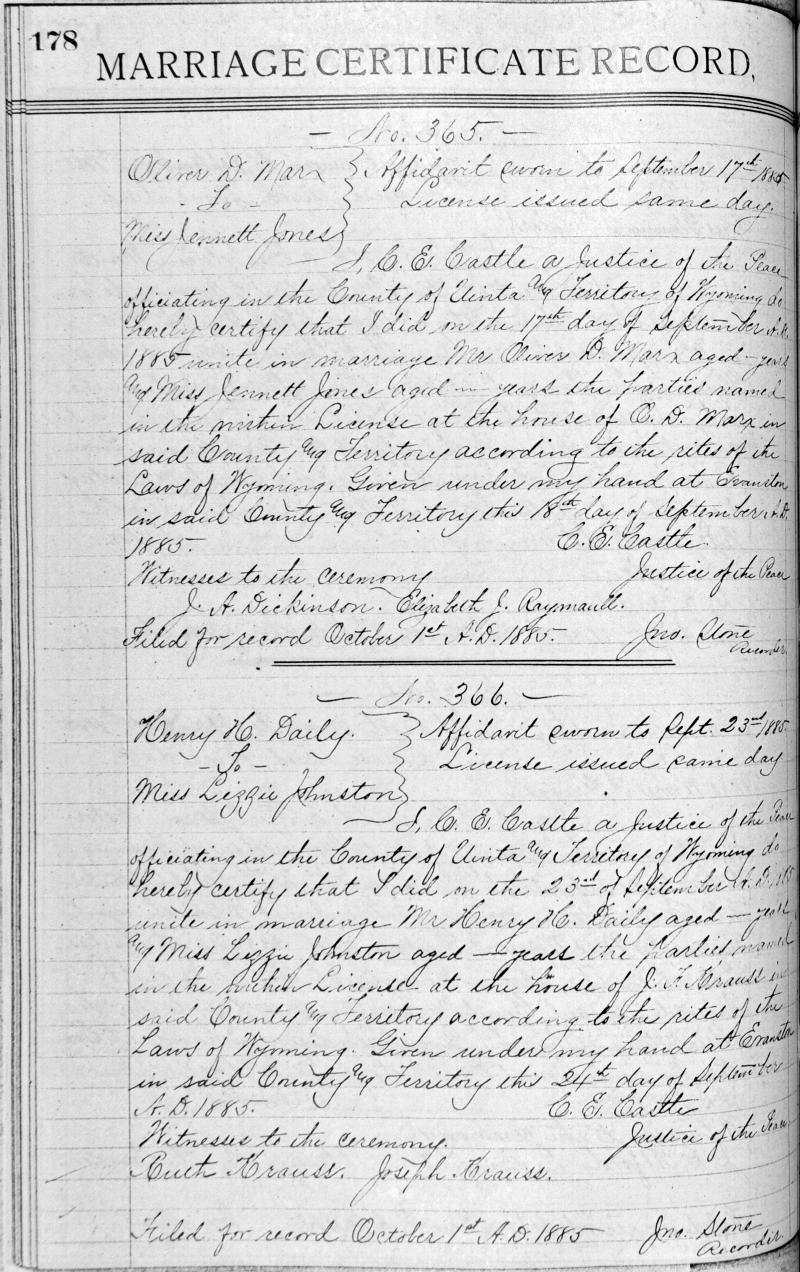 178
MARRIAGE CERTIFICATE RECORD,
— No. 365. —
Oliver D. Marx } Affidavit sworn to September 17th 1885
- To - License issued same day.
Miss Jennett Jones
I, C. E. Castle a Justice of the Peace
officiating in the County of Uinta and Territory of Wyoming do
hereby certify that I did on the 17th day of September A.D.
1885 unite in marriage Mr Oliver D. Marx aged — years
and Miss Jennett Jones aged — years the parties named
in the within License at the house of O. D. Marx in
said County and Territory according to the rites of the
Laws of Wyoming. Given under my hand at Evanston
in said County and Territory this 18th day of September A.D.
1885. C. E. Castle
Witnesses to the ceremony Justice of the Peace
J. A. Dickinson. Elizabeth J. Raymault.
Filed for record October 1st A.D. 1885. Jno. Stone
Recorder.
— No. 366. —
Henry H. Daily. } Affidavit sworn to Sept. 23rd 1885.
- To - License issued same day
Miss Lizzie Johnston
I, C. E. Castle a Justice of the Peace
officiating in the County of Uinta and Territory of Wyoming do
hereby certify that I did on the 23rd of September A.D. 1885
unite in marriage Mr Henry H. Daily aged — years
and Miss Lizzie Johnston aged — years the parties named
in the within License - at the house of J. F. Krauss in
said County and Territory according to the rites of the
Laws of Wyoming. Given under my hand at Evanston
in said County and Territory this 24th day of September
A.D. 1885. C. E. Castle
Witnesses to the ceremony. Justice of the Peace
Ruth Krauss. Joseph Krauss.
Filed for record October 1st A.D. 1885 Jno. Stone
Recorder.